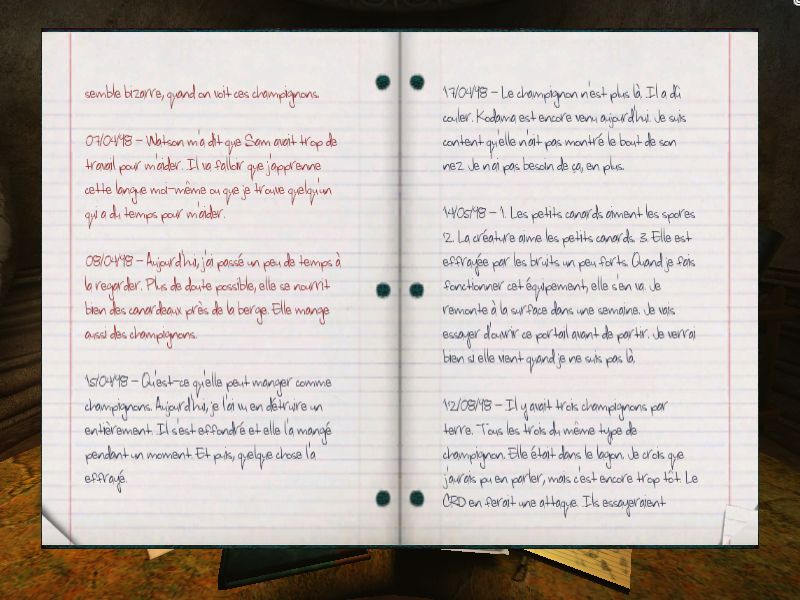 semble bizarre, quand on voit ces champignons.
07/04/98 - Watson m'a dit que Sam avait trop de
travail pour m'aider. Il va falloir que j'apprenne
cette langue moi-même ou que je trouve quelqu'un
qui a du temps pour m'aider.
08/04/98 - Aujourd'hui, j'ai passé un peu de temps à
la regarder. Plus de doute possible, elle se nourrit
bien des canardeaux près de la berge. Elle mange
aussi des champignons.
15/04/98 - Qu'est-ce qu'elle peut manger comme
champignons. Aujourd'hui, je l'ai vu en détruire un
entièrement. Il s'est effondré et elle l'a mangé
pendant un moment. Et puis, quelque chose l'a
effrayé.
17/04/98 - Le champignon n'est plus là. Il a dû
couler. Kodama est encore venu aujourd'hui. Je suis
content qu'elle n'ait pas montré le bout de son
nez. Je n'ai pas besoin de ça, en plus.
14/05/98 - 1. Les petits canards aiment les spores
2. La créature aime les petits canards 3. Elle est
effrayée par les bruits un peu forts. Quand je fais
fonctionner cet équipement, elle s'en va. Je
remonte à la surface dans une semaine. Je vais
essayer d'ouvrir ce portail avant de partir. Je verrai
bien si elle vient quand je ne suis pas là.
12/08/98 - Il y avait trois champignons par
terre. Tous les trois du même type de
champignon. Elle était dans le lagon. Je crois que
j'aurais pu en parler, mais c'est encore trop tôt. Le
CRD en ferait une attaque. Ils essayeraient